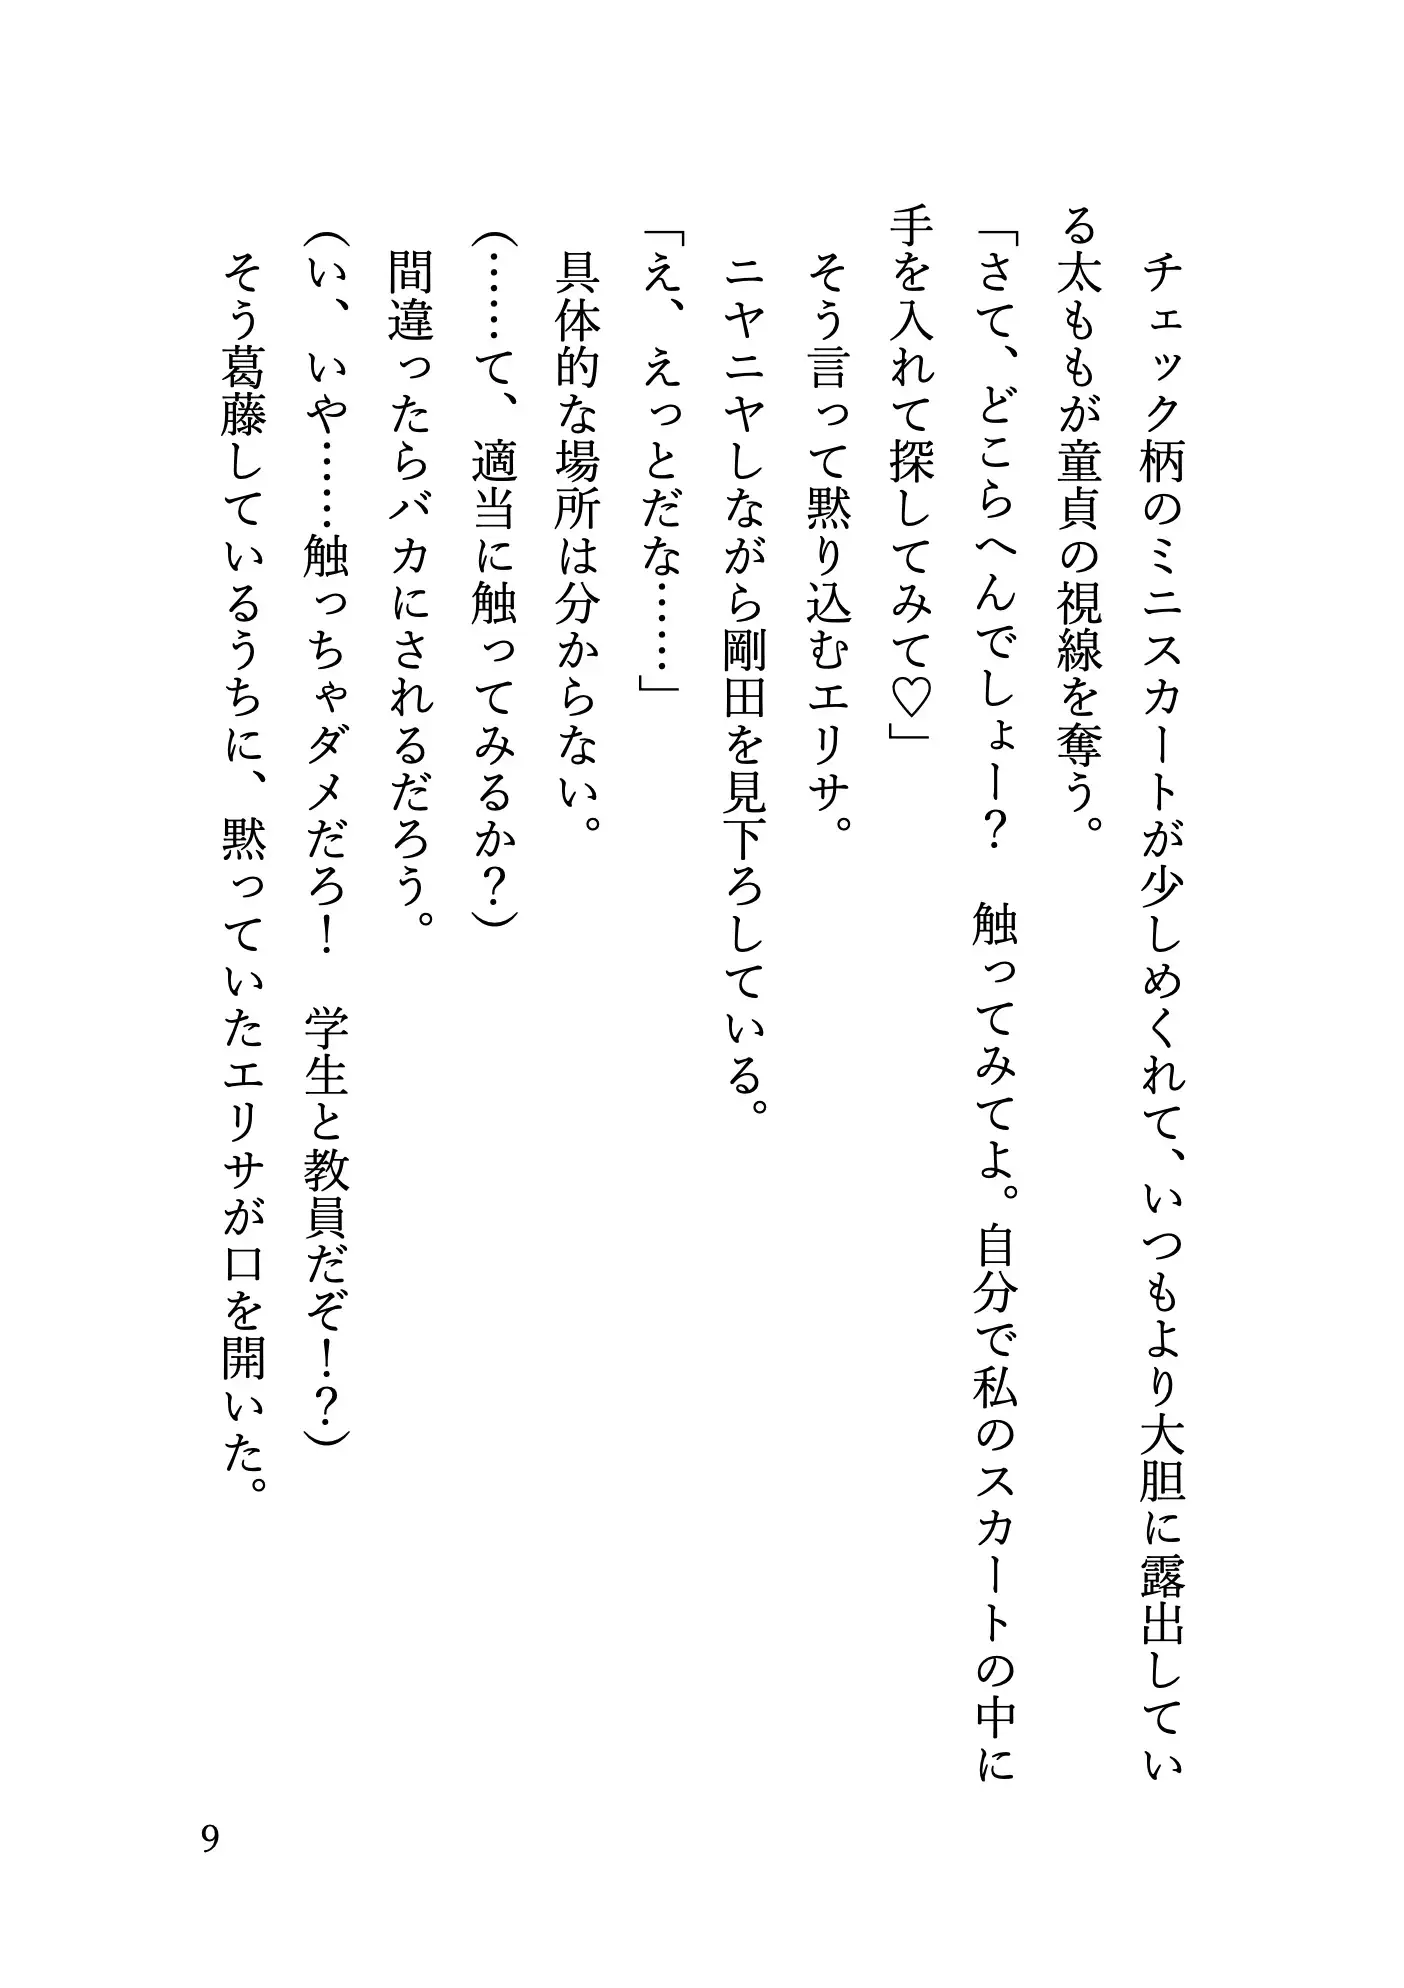 チェック柄のミニスカートが少しめくれて、いつもより大胆に露出してい
る太ももが童貞の視線を奪う。
「さて、どこらへんでしょー？　触ってみてよ。自分で私のスカートの中に
手を入れて探してみて♡」
そう言って黙り込むエリサ。
ニヤニヤしながら剛田を見下ろしている。
「え、えっとだな……」
具体的な場所は分からない。
（……て、適当に触ってみるか？）
間違ったらバカにされるだろう。
（い、いや……触っちゃダメだろ！　学生と教員だぞ！？）
そう葛藤しているうちに、黙っていたエリサが口を開いた。
9